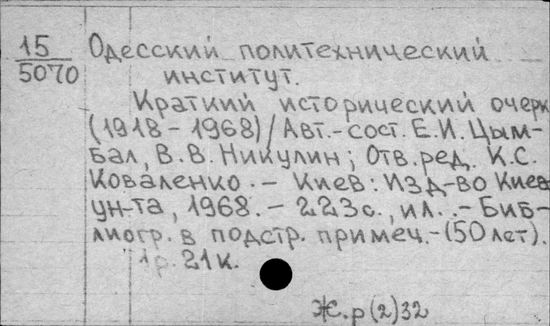 15
5070
Одесский политехнический
институт.
Краткий исторический очерк
(1918-1968)/Авт.-сост. Е.И. Цым-
бал, В.В. Никулин; Отв. ред. К.С.
Коваленко. - Киев: Изд-во Киев.
ун-та, 1968. - 223с., ил. - Биб-
лиогр. в подстр. примеч. - (50 лет).
1р. 21к.
Ж.р(2)32